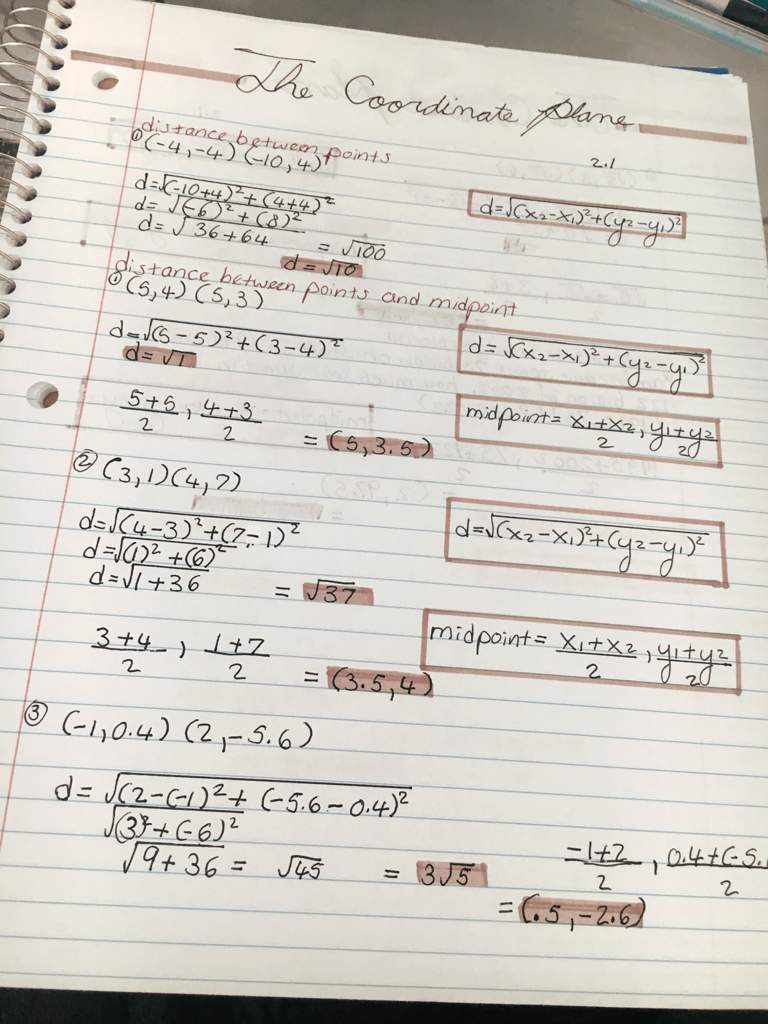 The Coordinate plane
2.1
distance between points
① (-4,-4) (-10,4)
d=√(-10+4)²+(4+4)²
d=√(-6)²+(8)²
d=√36+64 = √100
d=√10
d=√(x₂-x₁)²+(y₂-y₁)²
distance between points and midpoint
① (5,4) (5,3)
d=√(5-5)²+(3-4)²
d=√1
d=√(x₂-x₁)²+(y₂-y₁)²
5+5/2 , 4+3/2 = (5,3.5)
midpoint= x₁+x₂/2 , y₁+y₂/2
② (3,1)(4,7)
d=√(4-3)²+(7-1)²
d=√(1)²+(6)²
d=√1+36 = √37
d=√(x₂-x₁)²+(y₂-y₁)²
3+4/2 , 1+7/2 = (3.5,4)
midpoint= x₁+x₂/2 , y₁+y₂/2
③ (-1,0.4) (2,-5.6)
d=√(2-(-1)²+(-5.6-0.4)²
√(3)²+(-6)²
√9+36 = √45 = 3√5
-1+2/2 , 0.4+(-5./2
= (.5,-2.6)